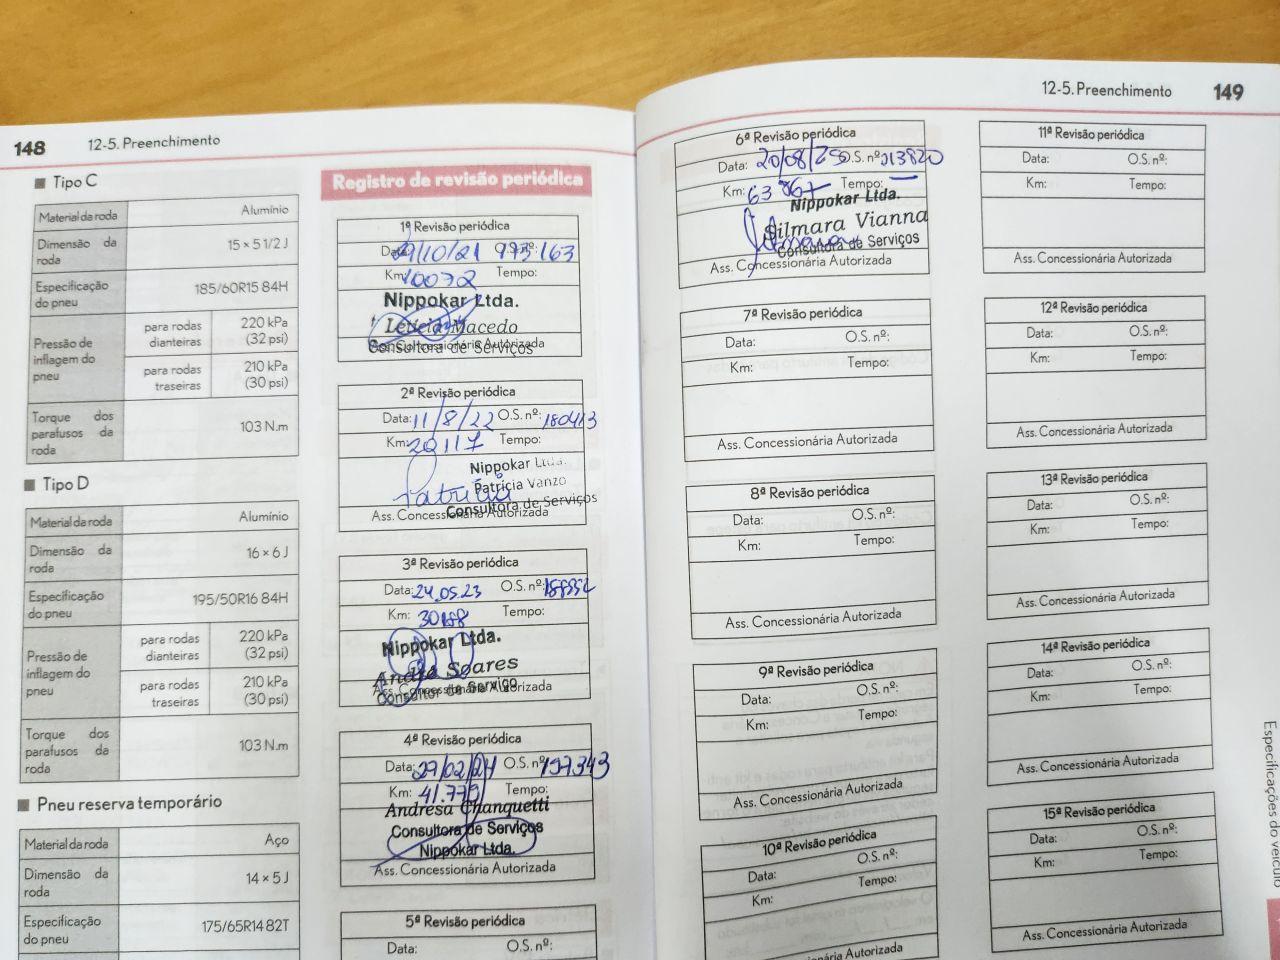 148 12-5. Preenchimento
■ Tipo C
Material da roda Alumínio
Dimensão da roda 15 × 5 1/2 J
Especificação do pneu 185/60R15 84H
Pressão de inflagem do pneu
para rodas dianteiras 220 kPa (32 psi)
para rodas traseiras 210 kPa (30 psi)
Torque dos parafusos da roda 103 N.m
■ Tipo D
Material da roda Alumínio
Dimensão da roda 16 × 6 J
Especificação do pneu 195/50R16 84H
Pressão de inflagem do pneu
para rodas dianteiras 220 kPa (32 psi)
para rodas traseiras 210 kPa (30 psi)
Torque dos parafusos da roda 103 N.m
■ Pneu reserva temporário
Material da roda Aço
Dimensão da roda 14 × 5 J
Especificação do pneu 175/65R14 82T
Registro de revisão periódica
1ª Revisão periódica
Data: 29/10/21 O.S. nº: 993.163
Km: 10072 Tempo:
Nippokar Ltda.
Letícia Macedo
Consultora de Serviços
Ass. Concessionária Autorizada
2ª Revisão periódica
Data: 11/8/22 O.S. nº: 180413
Km: 20117 Tempo:
Nippokar Ltda.
Patrícia Vanzo
Consultora de Serviços
Ass. Concessionária Autorizada
3ª Revisão periódica
Data: 24.05.23 O.S. nº:
Km: 30188 Tempo:
Nippokar Ltda.
André Soares
Consultor de Serviço
Ass. Concessionária Autorizada
4ª Revisão periódica
Data: 27/02/24 O.S. nº: 197343
Km: 41.779 Tempo:
Andresa Chanquetti
Consultora de Serviços
Nippokar Ltda.
Ass. Concessionária Autorizada
5ª Revisão periódica
Data: O.S. nº:
12-5. Preenchimento 149
6ª Revisão periódica
Data: 20/08/25 O.S. nº: 013820
Km: 63 867 Tempo:
Nippokar Ltda.
Silmara Vianna
Consultora de Serviços
Ass. Concessionária Autorizada
7ª Revisão periódica
Data: O.S. nº:
Km: Tempo:
Ass. Concessionária Autorizada
8ª Revisão periódica
Data: O.S. nº:
Km: Tempo:
Ass. Concessionária Autorizada
9ª Revisão periódica
Data: O.S. nº:
Km: Tempo:
Ass. Concessionária Autorizada
10ª Revisão periódica
Data: O.S. nº:
Km: Tempo:
Ass. Concessionária Autorizada
11ª Revisão periódica
Data: O.S. nº:
Km: Tempo:
Ass. Concessionária Autorizada
12ª Revisão periódica
Data: O.S. nº:
Km: Tempo:
Ass. Concessionária Autorizada
13ª Revisão periódica
Data: O.S. nº:
Km: Tempo:
Ass. Concessionária Autorizada
14ª Revisão periódica
Data: O.S. nº:
Km: Tempo:
Ass. Concessionária Autorizada
15ª Revisão periódica
Data: O.S. nº:
Km: Tempo:
Ass. Concessionária Autorizada
Especificações do veículo